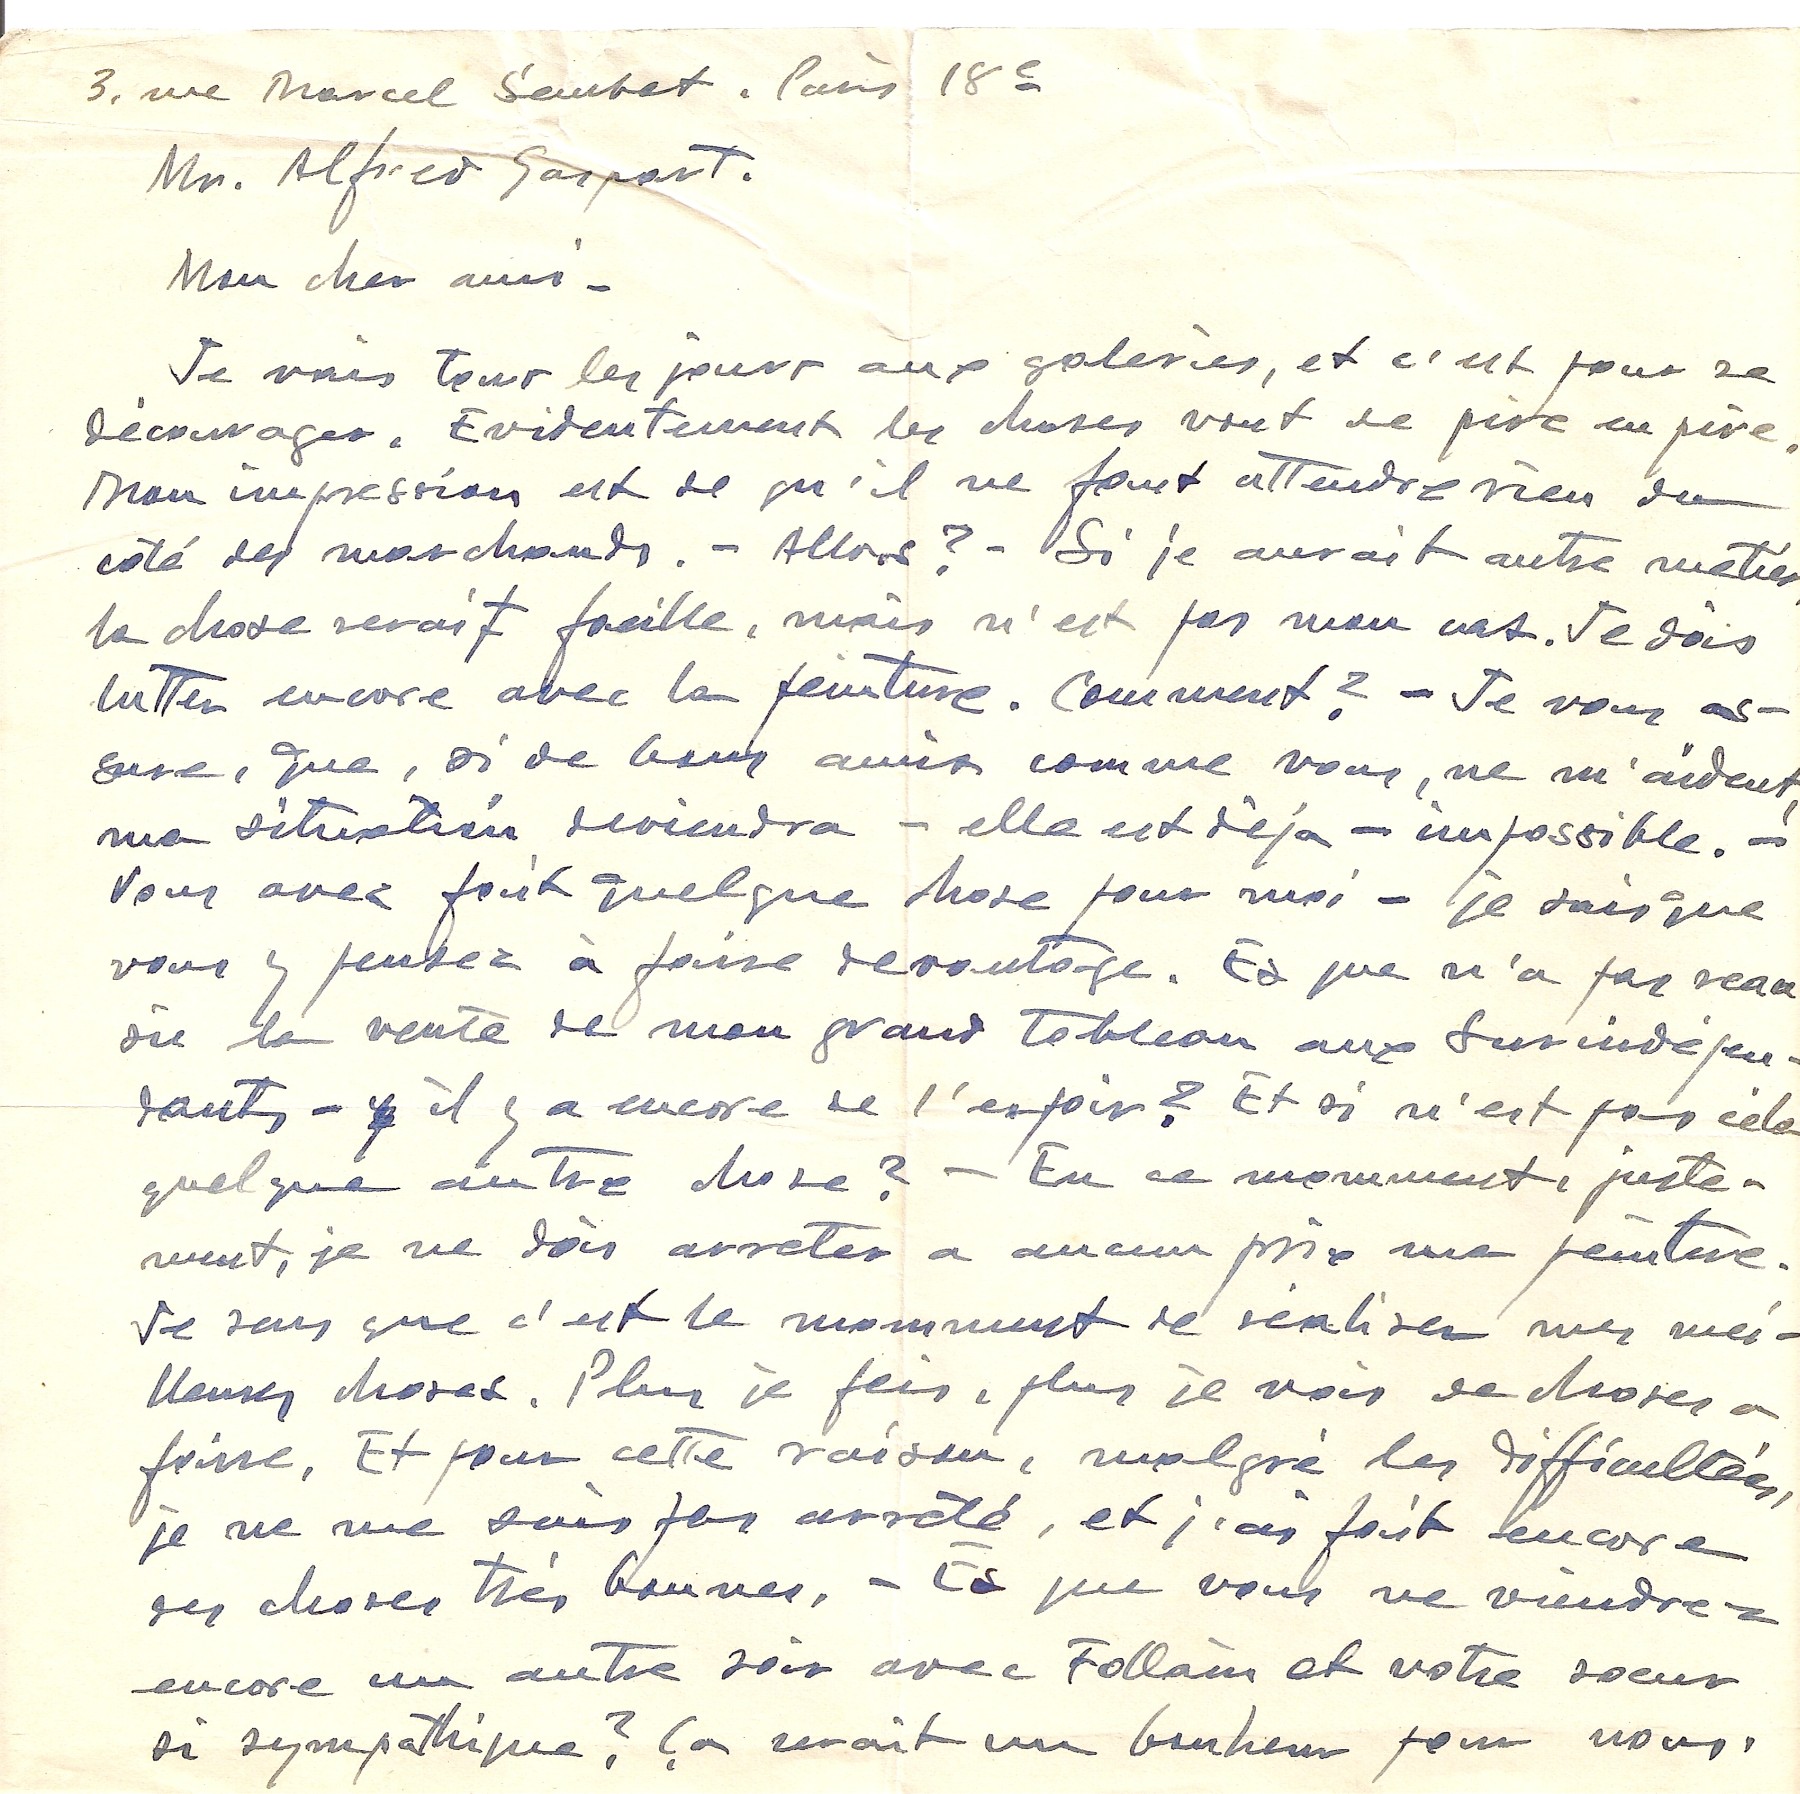 3. rue Marcel Sembat. Paris 18e
Mr. Alfred Gaspart.
Mon cher ami -
Je vais tous les jours aux galeries, et c'est pour se
décourager. Evidentement les choses vont de pire en pire.
Mon impression est de qu'il ne faut attendre rien du
côté des marchands. - Allors? - Si je aurait autre métier,
la chose serait facille, mais n'est pas mon cas. Je dois
lutter encore avec la peinture. Comment? - Je vous as-
sure, que, si de bons amis comme vous, ne m'aident,
ma situation deviendra - elle est déja - impossible. -
Vous avez fait quelque chose pour moi - je sais que
vous y pensez à faire devantage. Es que n'a pas reau
sii la vente de mon grand tableau aux Surindépen-
dants - il y a encore de l'espoir? Et si n'est pas cela
quelque autre chose? - En ce momment, juste-
ment, je ne dois arreter a aucun prix ma peinture.
Je sens que c'est le momment de réaliser mes mei-
lleures choses. Plus je fais, plus je vois de choses a
faire, Et pour cette raison, malgré les difficultées,
je ne me suis pas arrété, et j'ai fait encore
des choses trés bonnes. - Es que vous ne viendrez
encore un autre soir avec Follain et votre soeur
si sympathique? Ça serait un bonheur pour nous.